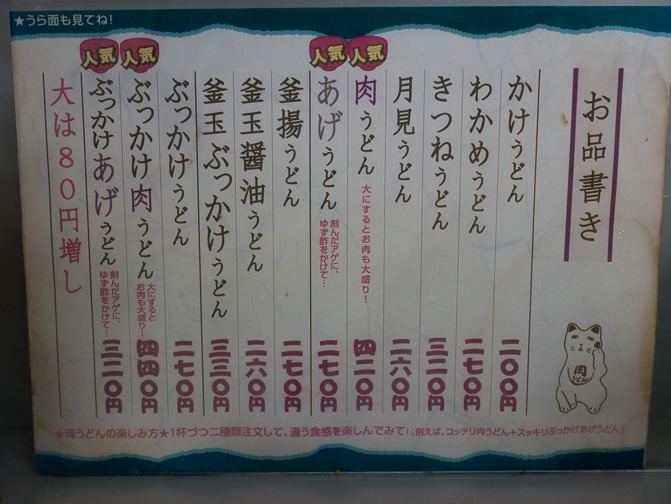 ★うら面も見てね!
お品書き
かけうどん 二〇〇円
わかめうどん 二七〇円
きつねうどん 三二〇円
月見うどん 二六〇円
人気
肉うどん 大にするとお肉も大盛り! 四二〇円
人気
あげうどん 刻んだアゲに、ゆず酢をかけて… 二七〇円
釜揚うどん 二七〇円
釜玉醤油うどん 二六〇円
釜玉ぶっかけうどん 三三〇円
ぶっかけうどん 二七〇円
人気
ぶっかけ肉うどん 大にするとお肉も大盛り! 四四〇円
人気
ぶっかけあげうどん 刻んだアゲに、ゆず酢をかけて… 三二〇円
大は80円増し
岡うどん
★岡うどんの楽しみ方★1杯づつ二種類注文して、違う食感を楽しんでみて!(例えば、コッテリ肉うどん+スッキリぶっかけあげうどん)